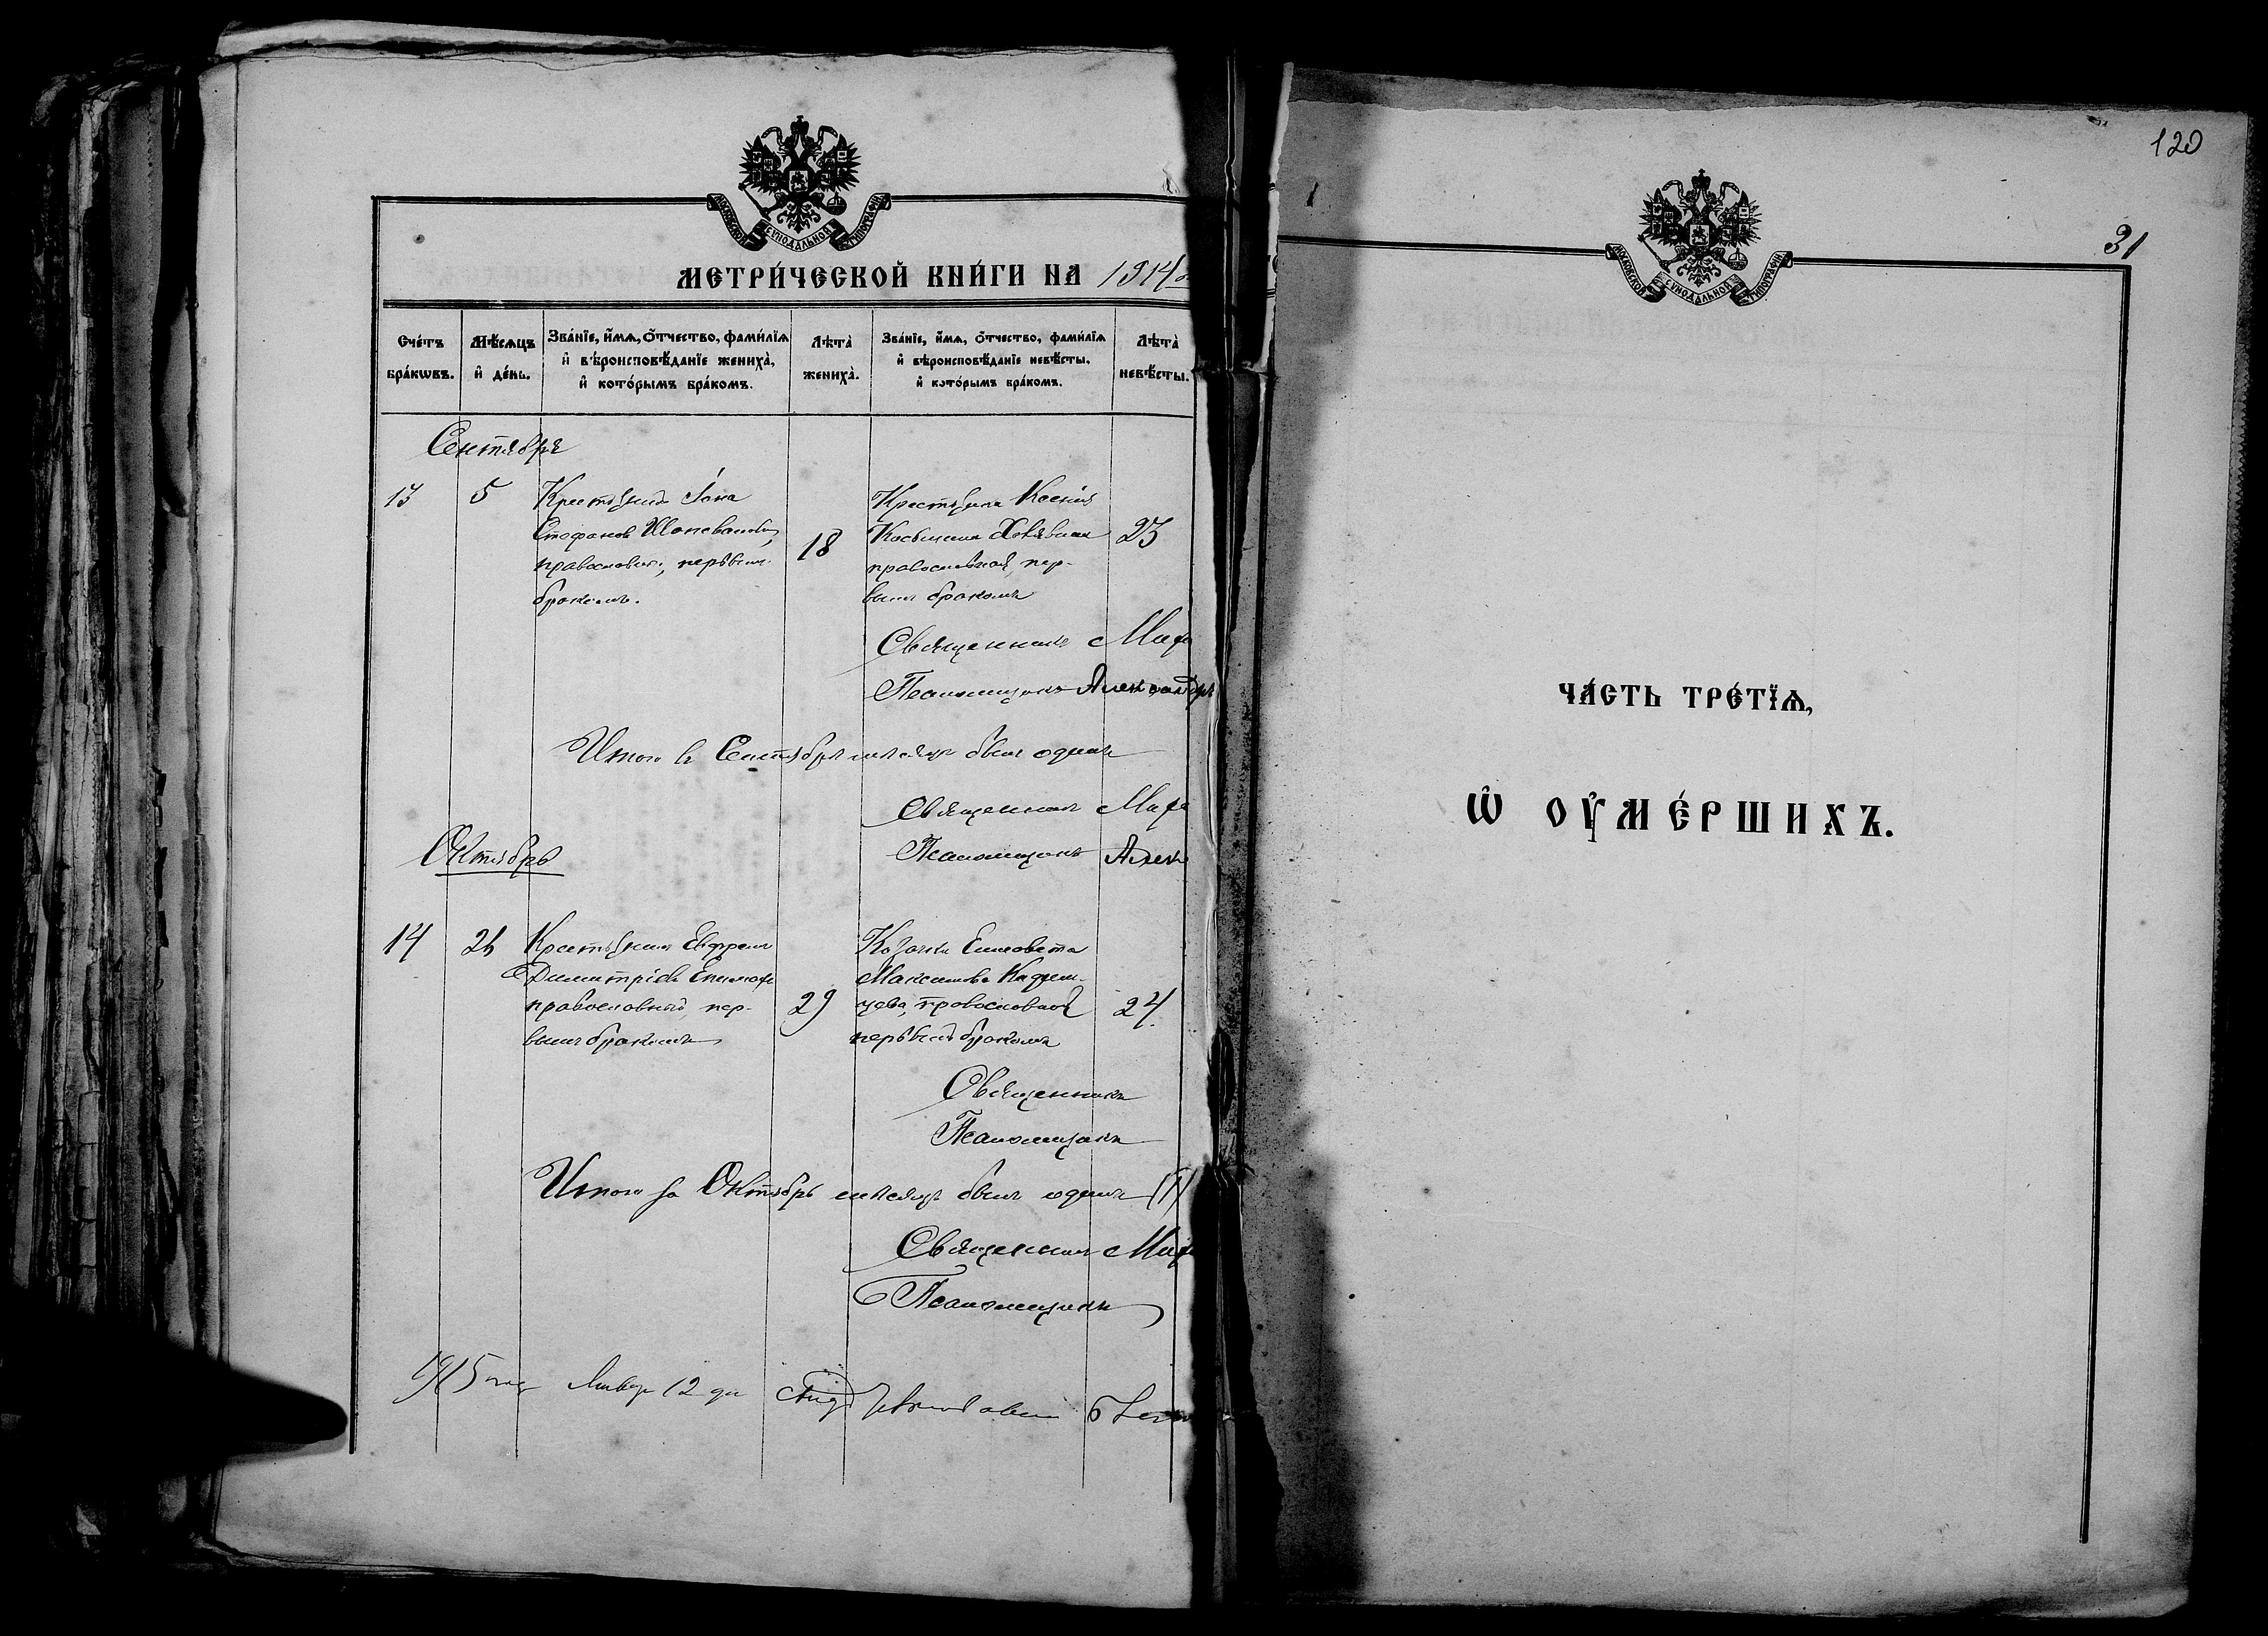 МОСКОВСКОЙ СѴНОДАЛЬНОЙ ТИПОГРАФІИ
МЕТРИ́ЧЕСКОЙ КНИ́ГИ НА 1914
Сче́тъ бра́кѡвъ.
Мѣ́сѧцъ и҆ де́нь.
Зва́нїе, и҆́мѧ, ѻ҆́тчество, фами́лїѧ и҆ вѣроисповѣ́данїе жениха̀, и҆ кото́рымъ бра́комъ.
Лѣта̀ жениха̀.
Зва́нїе, и҆́мѧ, ѻ҆́тчество, фами́лїѧ и҆ вѣроисповѣ́данїе невѣ́сты, и҆ кото́рымъ бра́комъ.
Лѣта̀ невѣ́сты.
Сентябрь
13
5
Крестьянинъ Іона
Стефановъ
православный, первымъ
бракомъ.
18
Крестьянка Ксенія
Косьмина
православная, пер-
вымъ бракомъ
23
Священникъ
Псаломщикъ Александръ
Итого въ Сентябрѣ мѣсяцѣ былъ одинъ
Священникъ
Псаломщикъ
Октябрь
14
Крестьянинъ Ефремъ
Димитріевъ
православный, пер-
вымъ бракомъ
29
Казачка Елисавета
Максимова
православная
первымъ бракомъ
24
Священникъ
Псаломщикъ
Итого за Октябрь мѣсяцъ былъ одинъ (1)
Священникъ
Псаломщикъ
1915 года Января 12 дня
120
31
МОСКОВСКОЙ СѴНОДАЛЬНОЙ ТИПОГРАФІИ
ЧА́СТЬ ТРЕ́ТЇѦ,
Ѡ҆ ОУ҆МЕ́РШИХЪ.